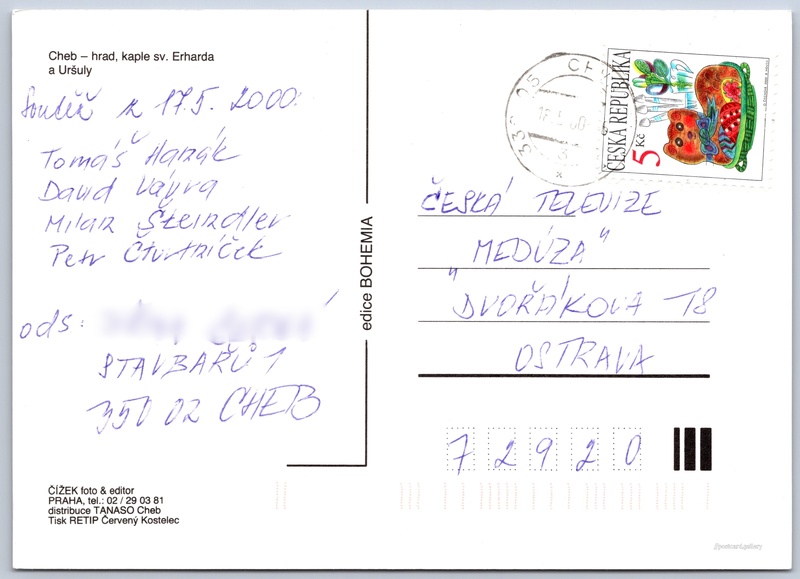 Cheb – hrad, kaple sv. Erharda
a Uršuly
Soutěž z 17.5. 2000:
Tomáš Hanák
David Vávra
Milan Šteindler
Petr Čtvrtníček
ods:
STAVBAŘŮ 1
350 02 CHEB
ČÍŽEK foto & editor
PRAHA, tel.: 02 / 29 03 81
distribuce TANASO Cheb
Tisk RETIP Červený Kostelec
edice BOHEMIA
ČESKÁ REPUBLIKA
5 Kč
ČESKÁ TELEVIZE
„MEDÚZA"
DVOŘÁKOVA 18
OSTRAVA
72920
postcart.gallery